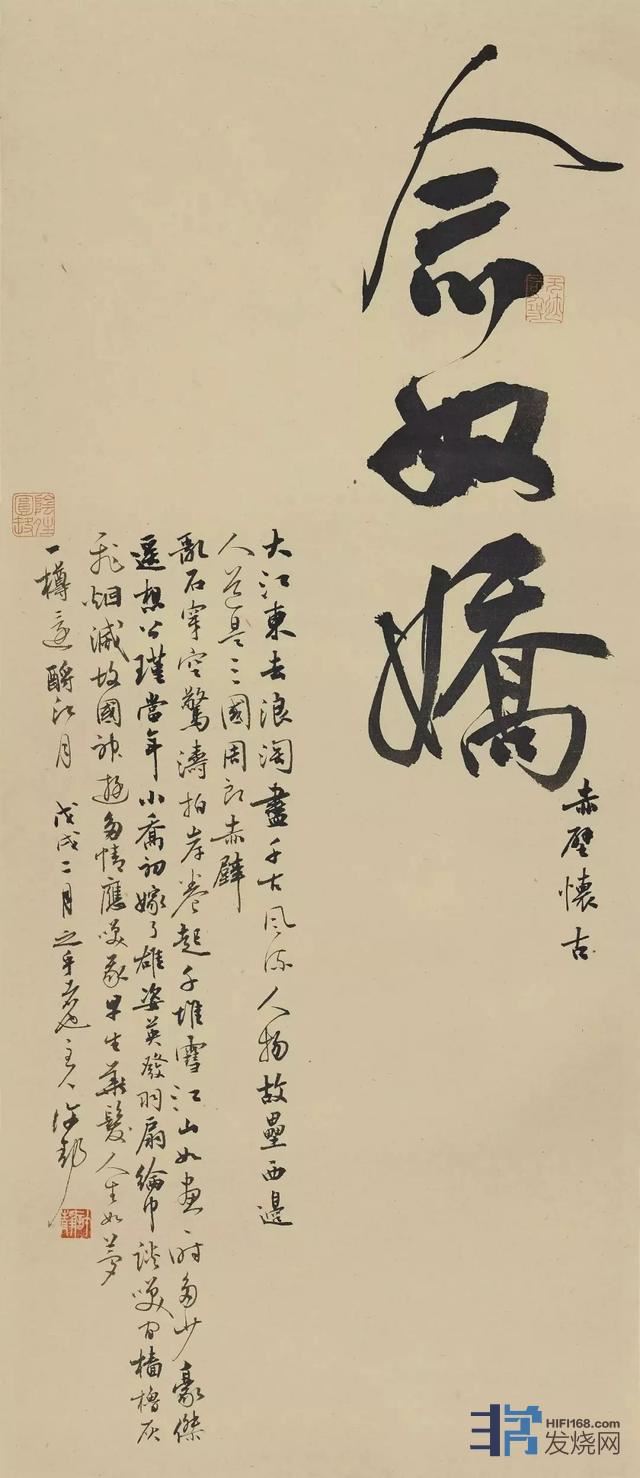 念奴嬌
赤壁懷古
大江東去浪淘盡千古風流人物故壘西邊
人道是三國周郎赤壁
亂石穿空驚濤拍岸卷起千堆雪江山如畫一時多少豪傑
遥想公瑾當年小喬初嫁了雄姿英發羽扇綸巾談咲间檣櫓灰
飛烟滅故國神遊多情應咲我早生華髮人生如夢
一樽還酹江月 戊戌二月之乎者也主人許静
陰晴圓缺
許静
HIFI168.com
发烧网